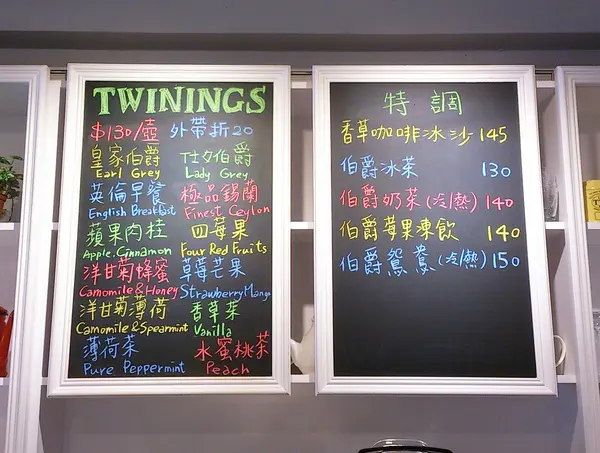 TWININGS
$130/壺 外帶折20
皇家伯爵 仕女伯爵
Earl Grey Lady Grey
英倫早餐 極品錫蘭
English Breakfast Finest Ceylon
蘋果肉桂 四莓果
Apple.Cinnamon Four Red Fruits
洋甘菊蜂蜜 草莓芒果
Camomile & Honey Strawberry Mango
洋甘菊薄荷 香草茶
Camomile & Spearmint Vanilla
薄荷茶 水蜜桃茶
Pure Peppermint Peach
特調
香草咖啡冰沙 145
伯爵冰茶 130
伯爵奶茶(冷/熱) 140
伯爵莓果凍飲 140
伯爵鴛鴦(冷/熱) 150